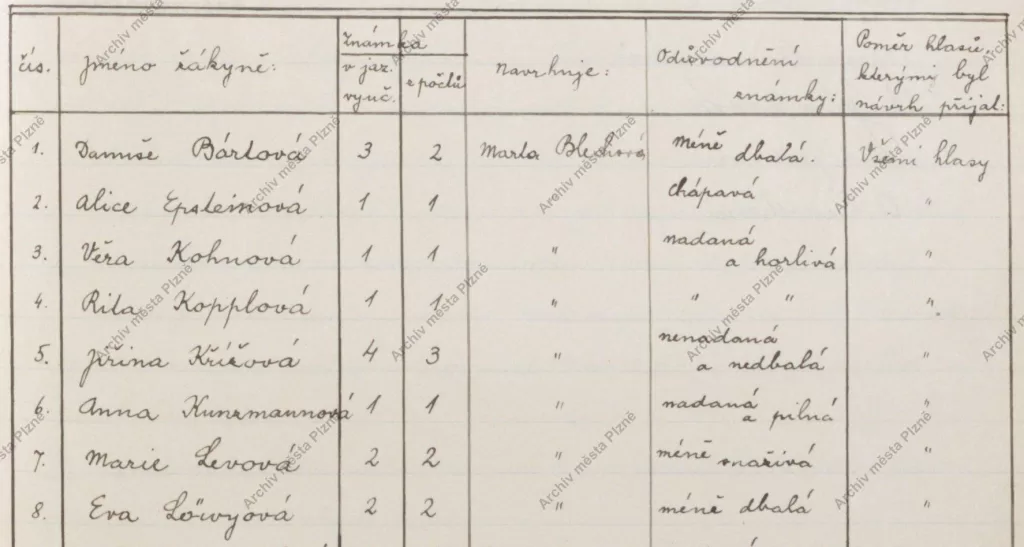 čís.
Jméno žákyně:
Známka
v jaz. vyuč.
z počtů
Navrhuje:
Odůvodnění známky:
Poměr hlasů, kterými byl návrh přijat:
1. Danuše Bártová 3 2 Marta Blechová méně dbalá. Všemi hlasy
2. Alice Epsteinová 1 1 chápavá "
3. Věra Kohnová 1 1 " nadaná a horlivá "
4. Rita Kopplová 1 1 " " " "
5. Jiřina Křížová 4 3 " nenadaná a nedbalá "
6. Anna Kunzmannová 1 1 " nadaná a pilná "
7. Marie Levová 2 2 " méně snaživá "
8. Eva Löwyová 2 2 " méně dbalá "
Archiv města Plzně